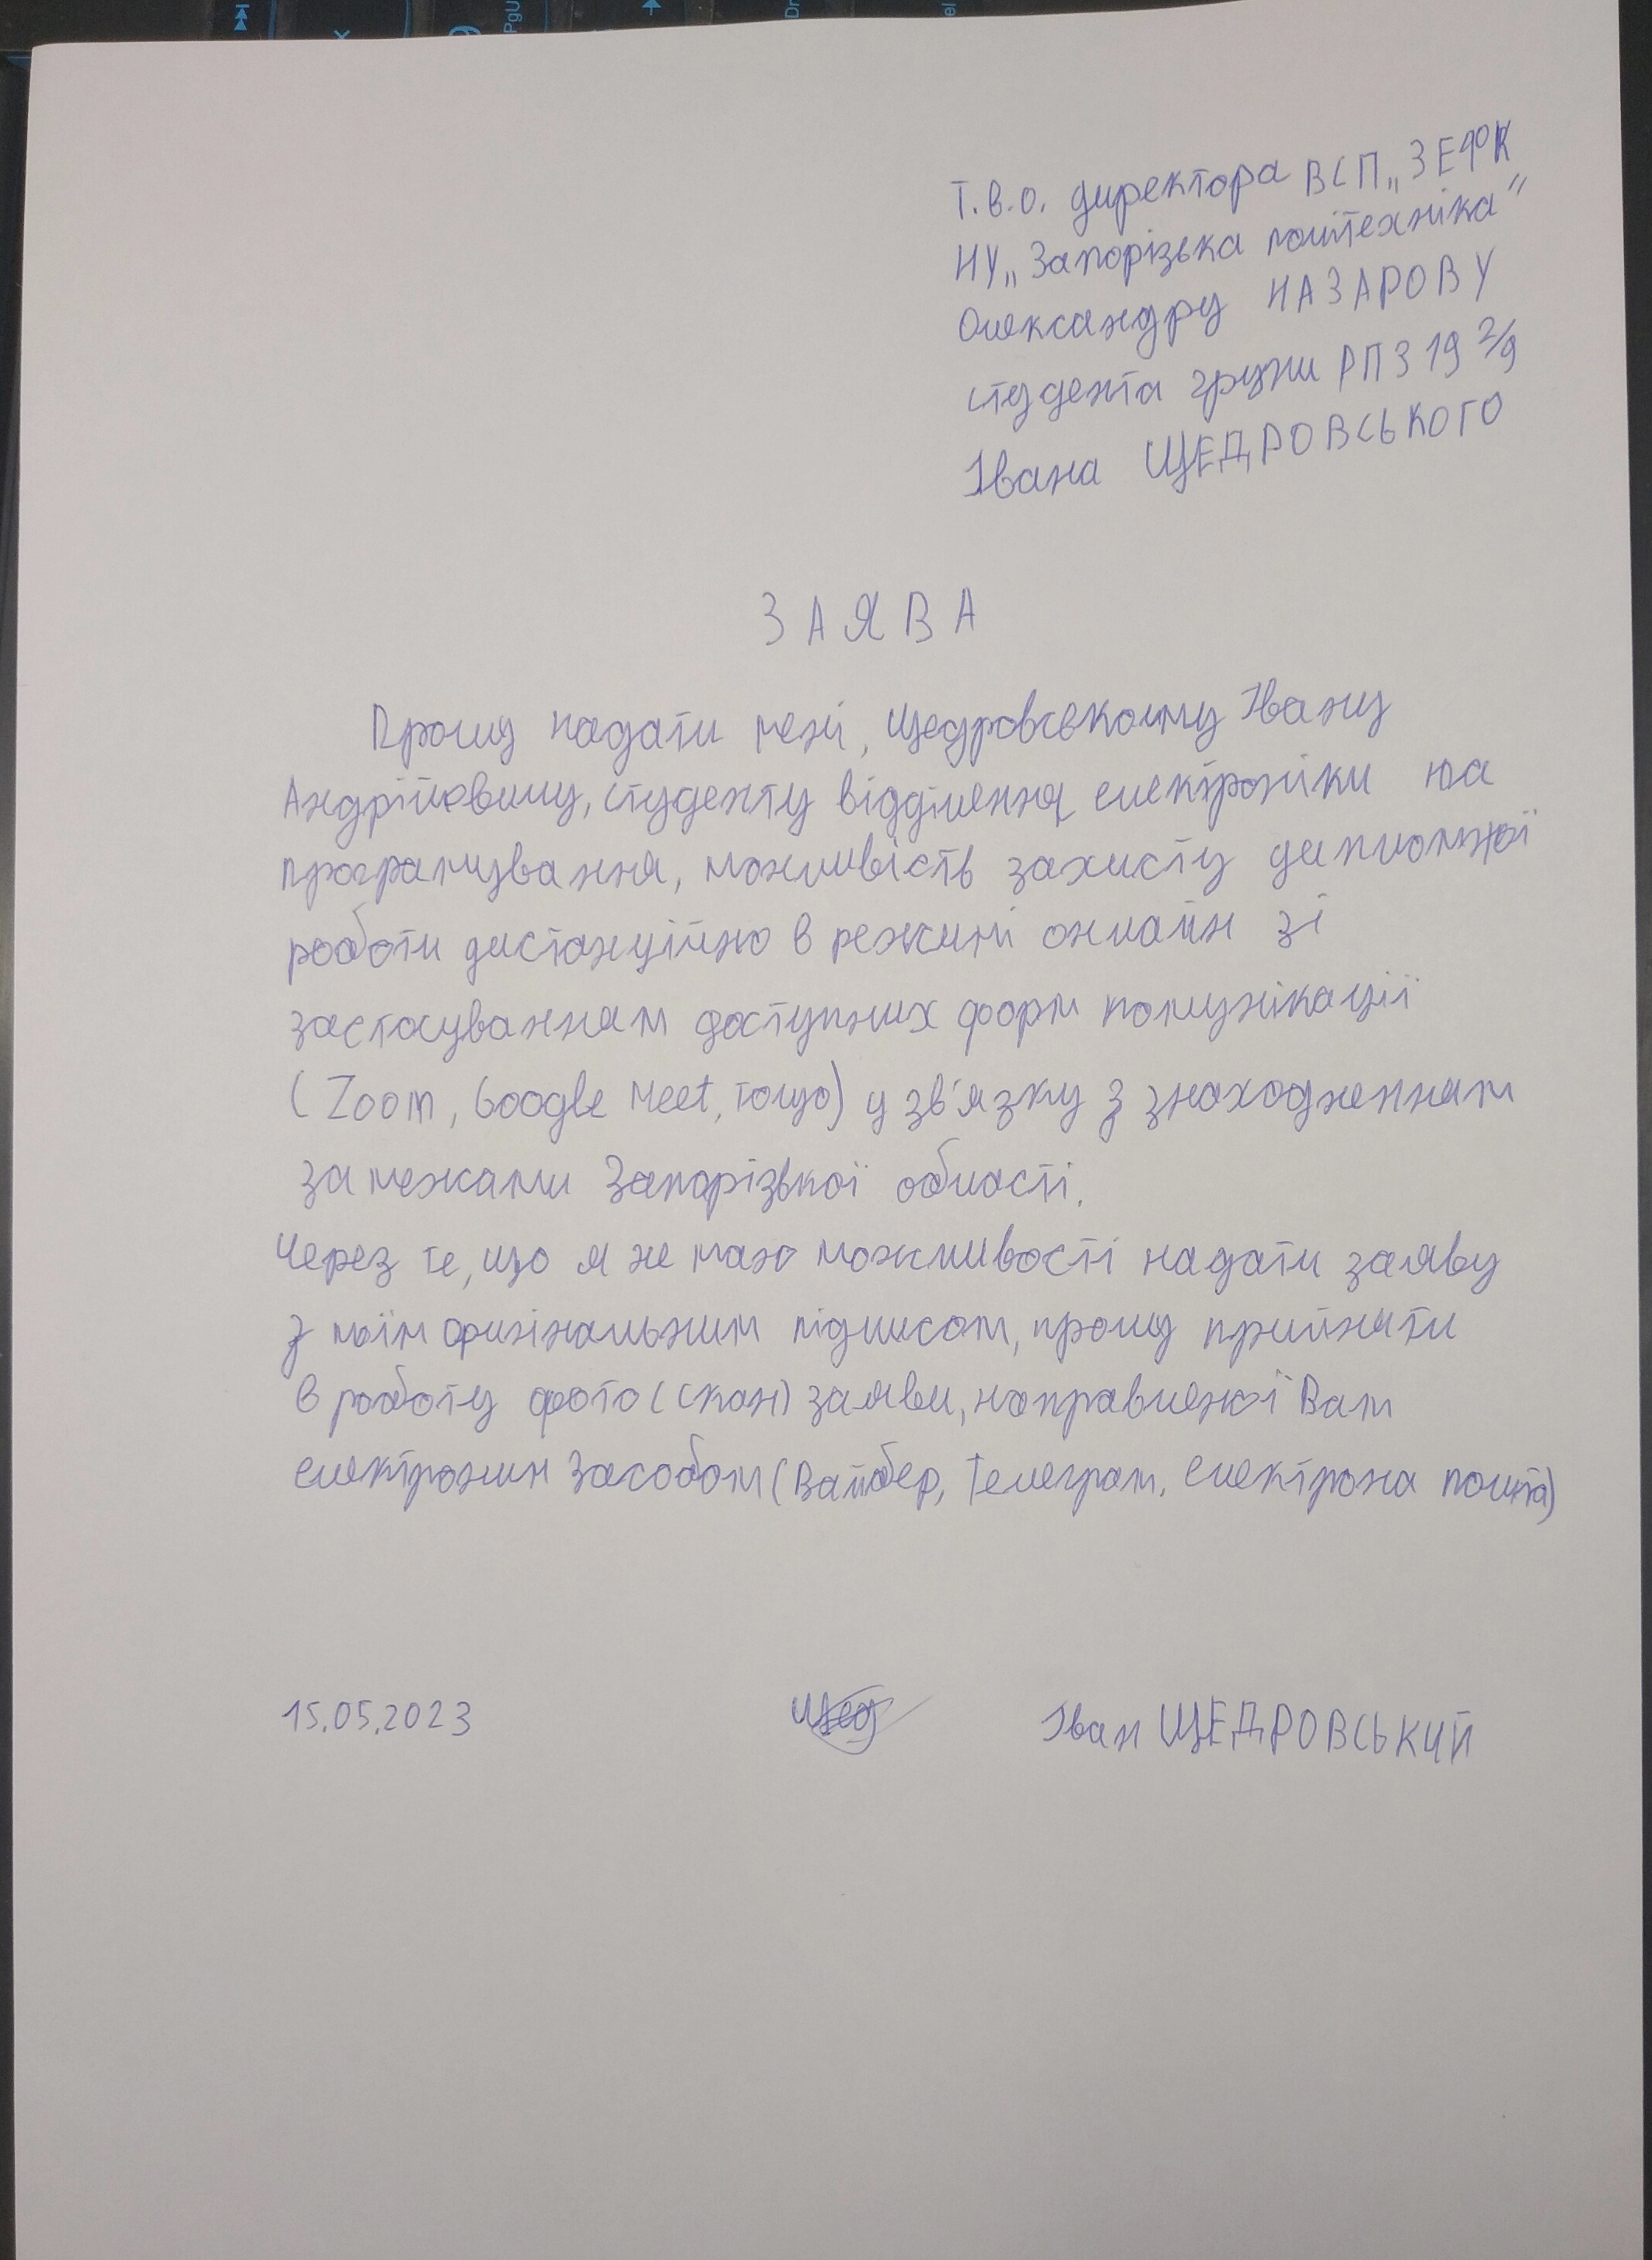 Т.в.о. директора ВСП „ЗЕФК
НУ „Запорізька політехніка"
Олександру НАЗАРОВУ
студента групи РПЗ 19 2/9
Івана ЩЕДРОВСЬКОГО
ЗАЯВА
Прошу надати мені, Щедровському Івану
Андрійовичу, студенту відділення електроніки та
програмування, можливість захисту дипломної
роботи дистанційно в режимі онлайн зі
застосуванням доступних форм комунікації
(Zoom, Google Meet, тощо) у зв'язку з знаходженням
за межами Запорізької області.
Через те, що я не маю можливості надати заяву
з моїм оригінальним підписом, прошу прийняти
в роботу фото (скан) заяви, направленої Вам
електроним засобом (Вайбер, Телеграм, електрона пошта)
15.05.2023 Щед Іван ЩЕДРОВСЬКИЙ